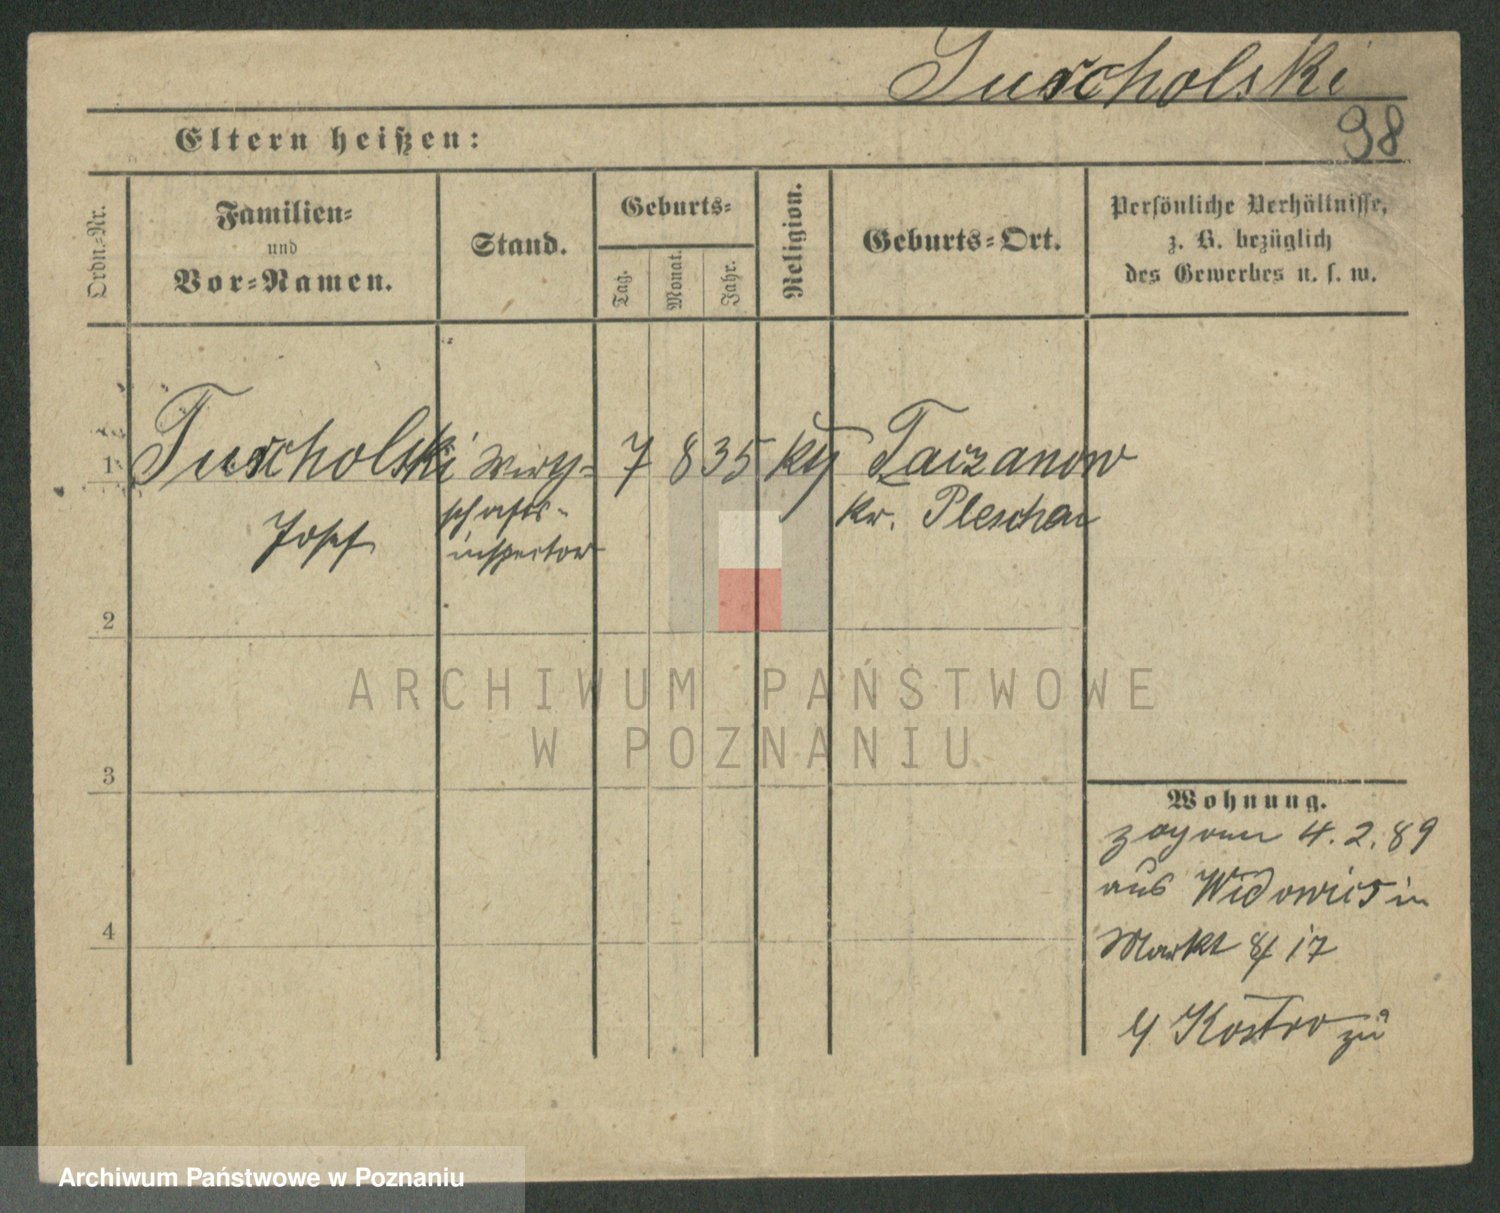 Tuscholski
98
Eltern heißen:
Ordn.-Nr.
Familien-
und
Vor-Namen.
Stand.
Geburts-
Tag.
Monat.
Jahr.
Religion.
Geburts-Ort.
Persönliche Verhältnisse,
z. B. bezüglich
des Gewerbes u. s. w.
1 Tuscholski Wirth- 7 8 35 Taczanow
Josef schafts- Kr. Pleschen
inspector
2
3
4
Wohnung.
4.2.89
aus in
Markt 17
Kostro zu
ARCHIWUM PAŃSTWOWE
W POZNANIU
Archiwum Państwowe w Poznaniu